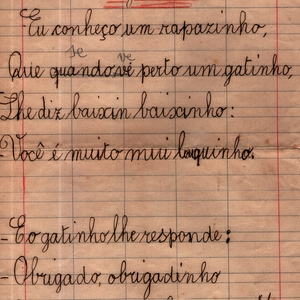 Eu conheço um rapazinho,
Que quando se vê perto um gatinho,
Lhe diz baixin baixinho:
- Você é muito mui
- E o gatinho lhe responde:
- Obrigado, obrigadinho